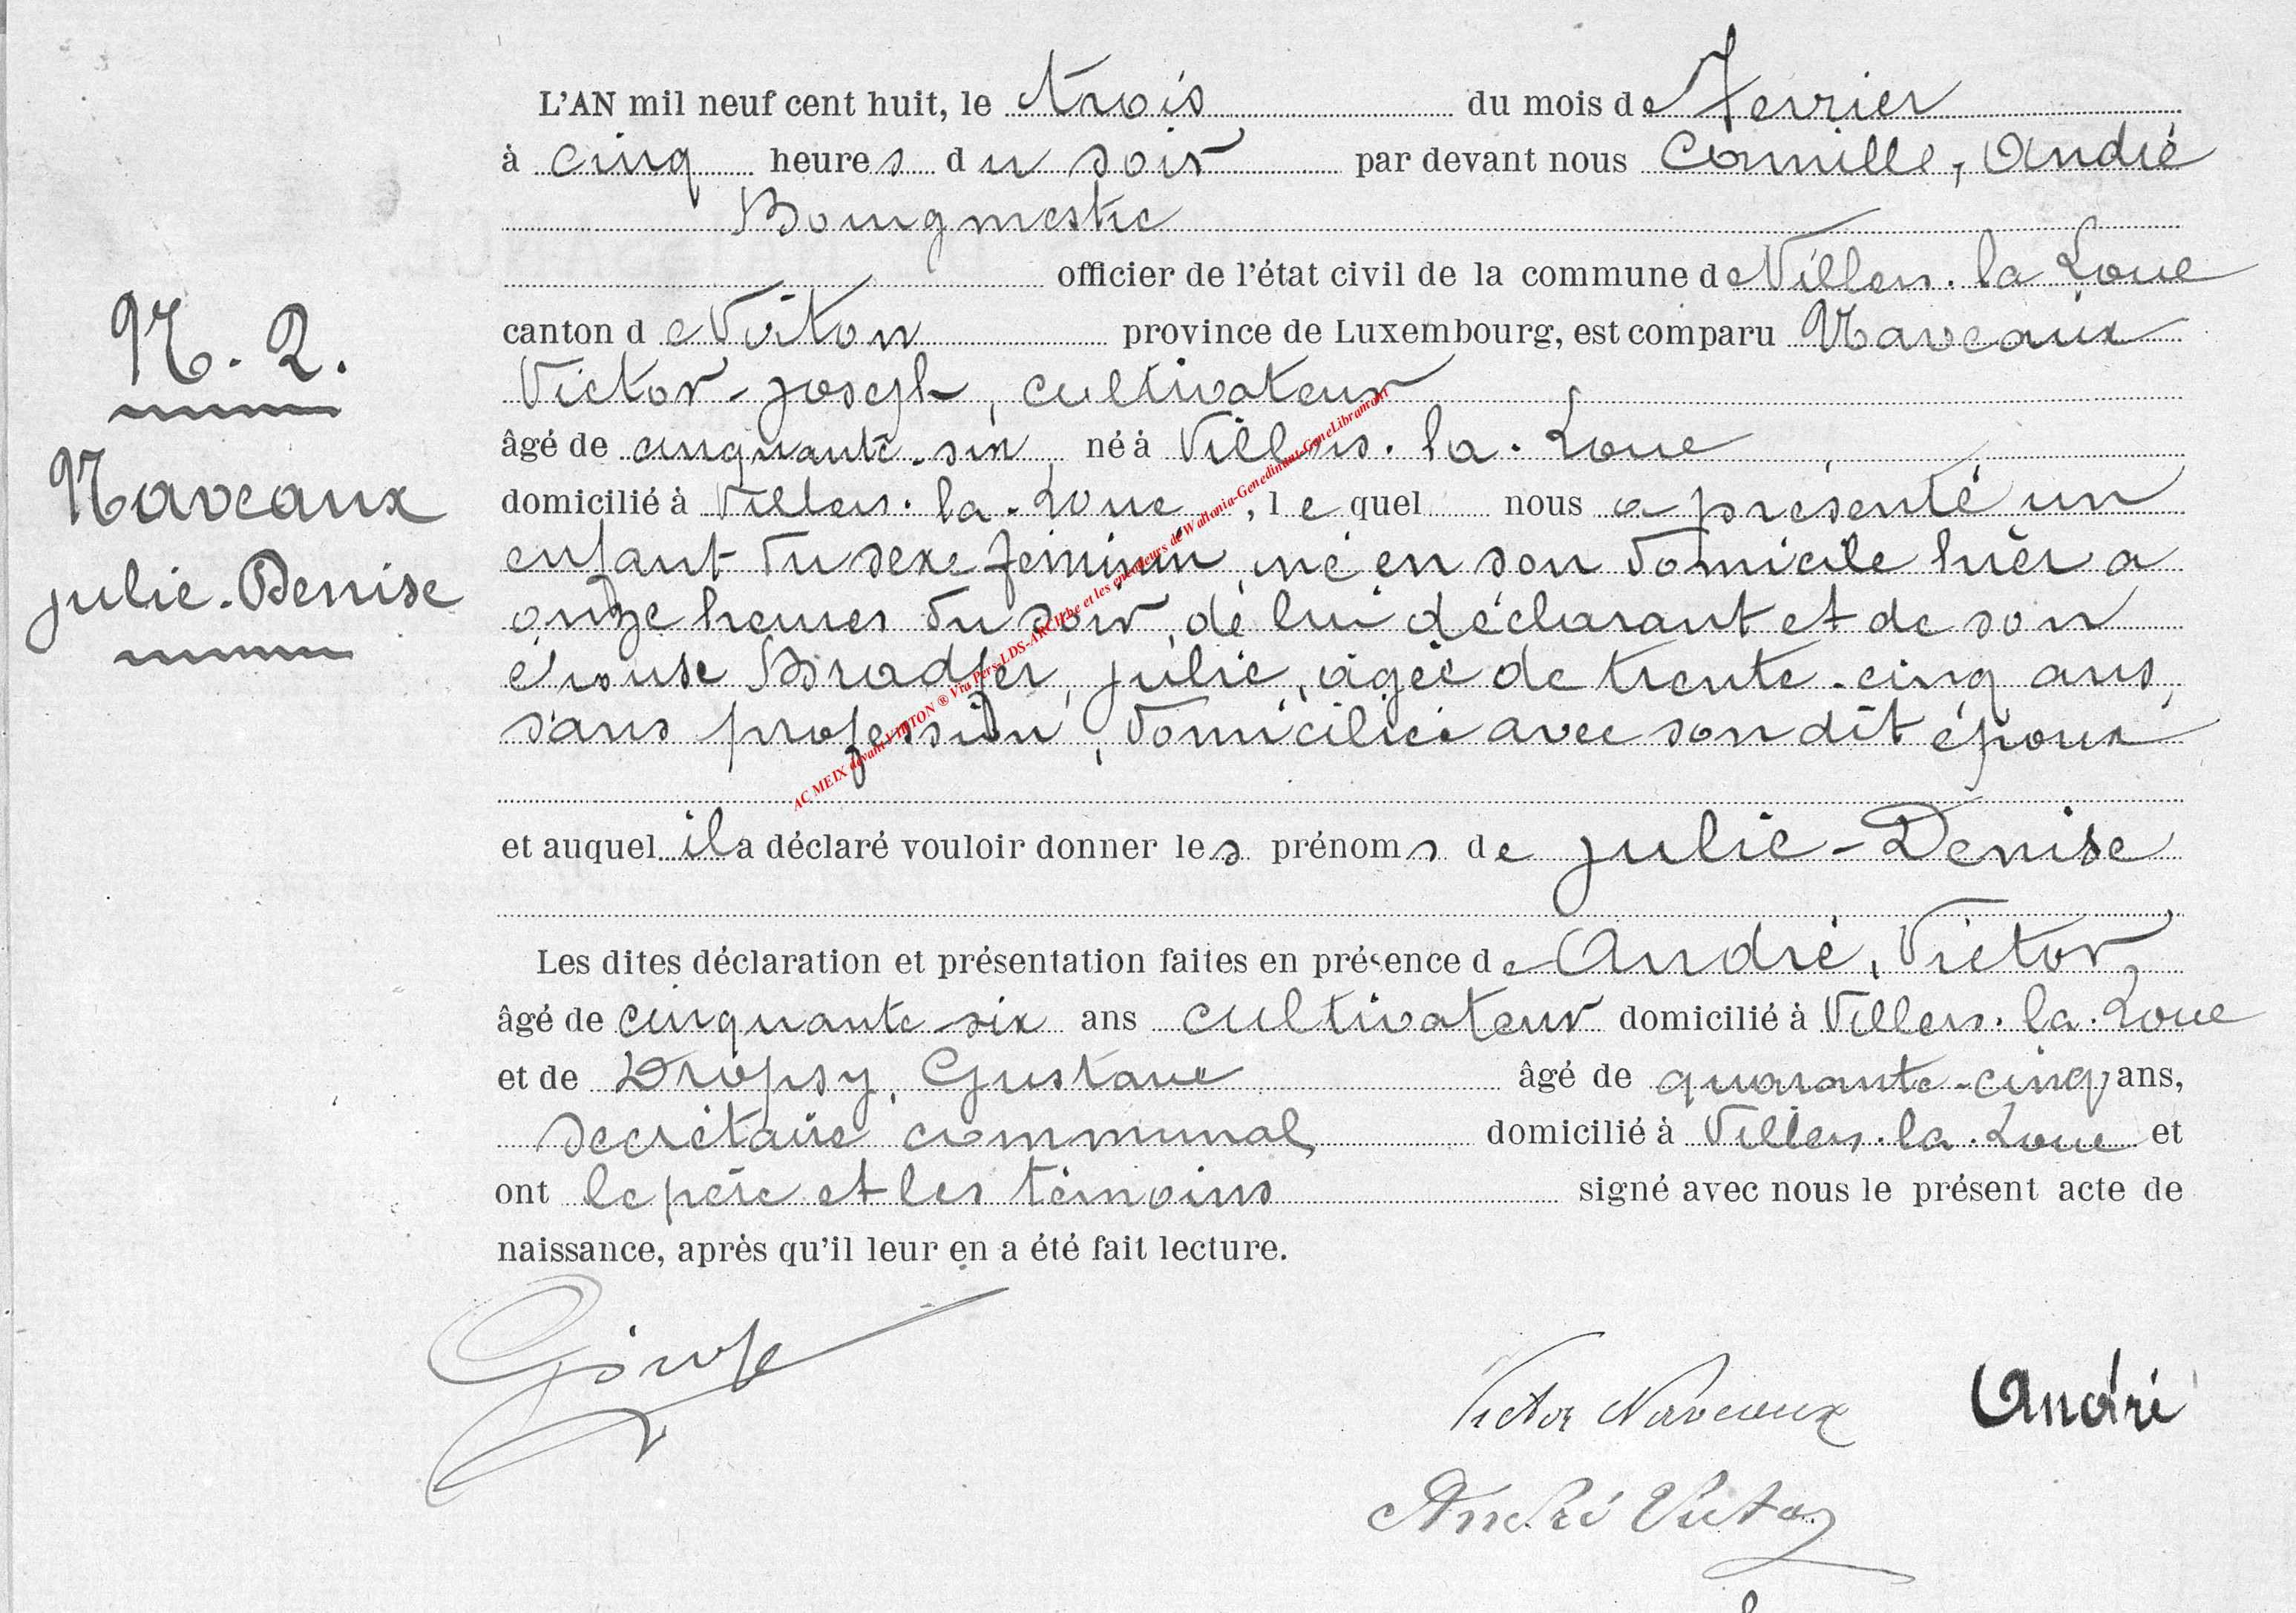 L'AN mil neuf cent huit, le trois du mois de Fevrier
à cinq heures du soir par devant nous Camille, André
Bourgmestre
officier de l'état civil de la commune de Villers-la-Loue
canton de Virton province de Luxembourg, est comparu Naveaux
Victor-Joseph, cultivateur
âgé de cinquante-six, né à Villers-la-Loue,
domicilié à Villers-la-Loue, lequel nous a présenté un
enfant du sexe féminin, né en son domicile hier a
onze heures du soir, de lui déclarant et de son
épouse Bradfer, Julie, agée de trente-cinq ans,
sans profession, domiciliée avec son dit époux
et auquel il a déclaré vouloir donner les prénoms de Julie-Denise
Les dites déclaration et présentation faites en présence de André, Victor,
âgé de cinquante-six ans cultivateur domicilié à Villers-la-Loue
et de Dropsy, Gustave âgé de quarante-cinq ans,
secrétaire communal domicilié à Villers-la-Loue et
ont le père et les témoins signé avec nous le présent acte de
naissance, après qu'il leur en a été fait lecture.
N. 2.
Naveaux
Julie-Denise
AC MEIX devant VIRTON ® Via Pers-LDS-ARCH.be et les encodeurs de Wallonia-Genedinant-GeneLibramont
Victor Naveaux
André
André Victor